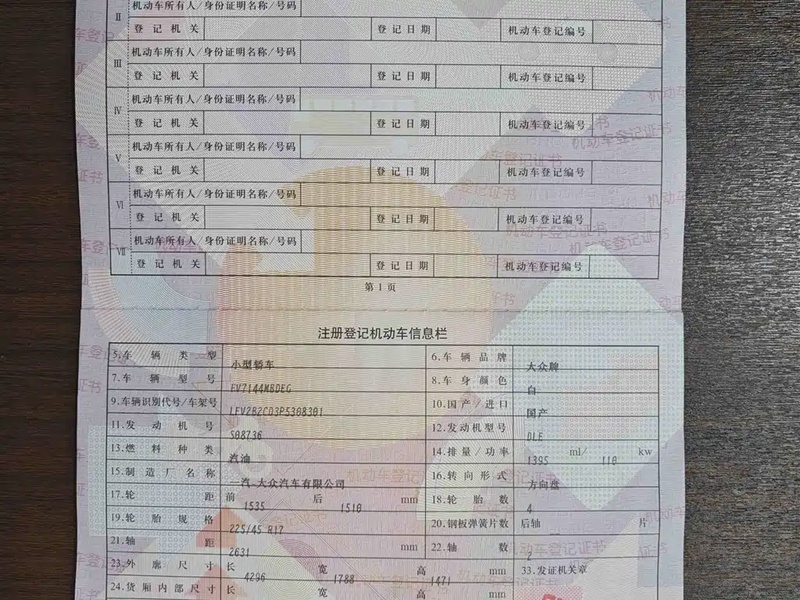 Ⅱ 机动车所有人/身份证明名称/号码
登记机关 登记日期 机动车登记编号
Ⅲ 机动车所有人/身份证明名称/号码
登记机关 登记日期 机动车登记编号
Ⅳ 机动车所有人/身份证明名称/号码
登记机关 登记日期 机动车登记编号
Ⅴ 机动车所有人/身份证明名称/号码
登记机关 登记日期 机动车登记编号
Ⅵ 机动车所有人/身份证明名称/号码
登记机关 登记日期 机动车登记编号
Ⅶ 机动车所有人/身份证明名称/号码
登记机关 登记日期 机动车登记编号
第 1 页
注册登记机动车信息栏
5.车辆类型 小型轿车 6.车辆品牌 大众牌
7.车辆型号 FV7144MBDEG 8.车身颜色 白
9.车辆识别代号/车架号 LFV2B2CD3P5308301 10.国产/进口 国产
11.发动机号 S08736 12.发动机型号
13.燃料种类 汽油 14.排量/功率 1395 ml/ 110 kw
15.制造厂名称 一汽-大众汽车有限公司 16.转向形式 方向盘
17.轮距 前 1535 后 1510 mm 18.轮胎数 4
19.轮胎规格 225/45 R17 20.钢板弹簧片数 后轴 片
21.轴距 2631 mm 22.轴数 2
23.外廓尺寸 长 4296 宽 1788 高 1471 mm 33.发证机关章
24.货厢内部尺寸 长 宽 高 mm